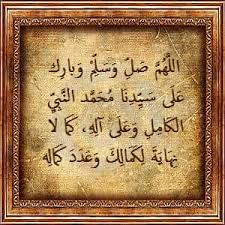 اللَّهُمَّ صَلِّ وَسَلِّمْ وَبَارِك
عَلَى سَيِّدِنَا مُحَمَّدٍ النَّبِيِّ
الكَامِلِ وَعَلَى آلِهِ، كَمَا لَا
نِهَايَةَ لِكَمَالِكَ وَعَدَدَ كَمَالِهِ